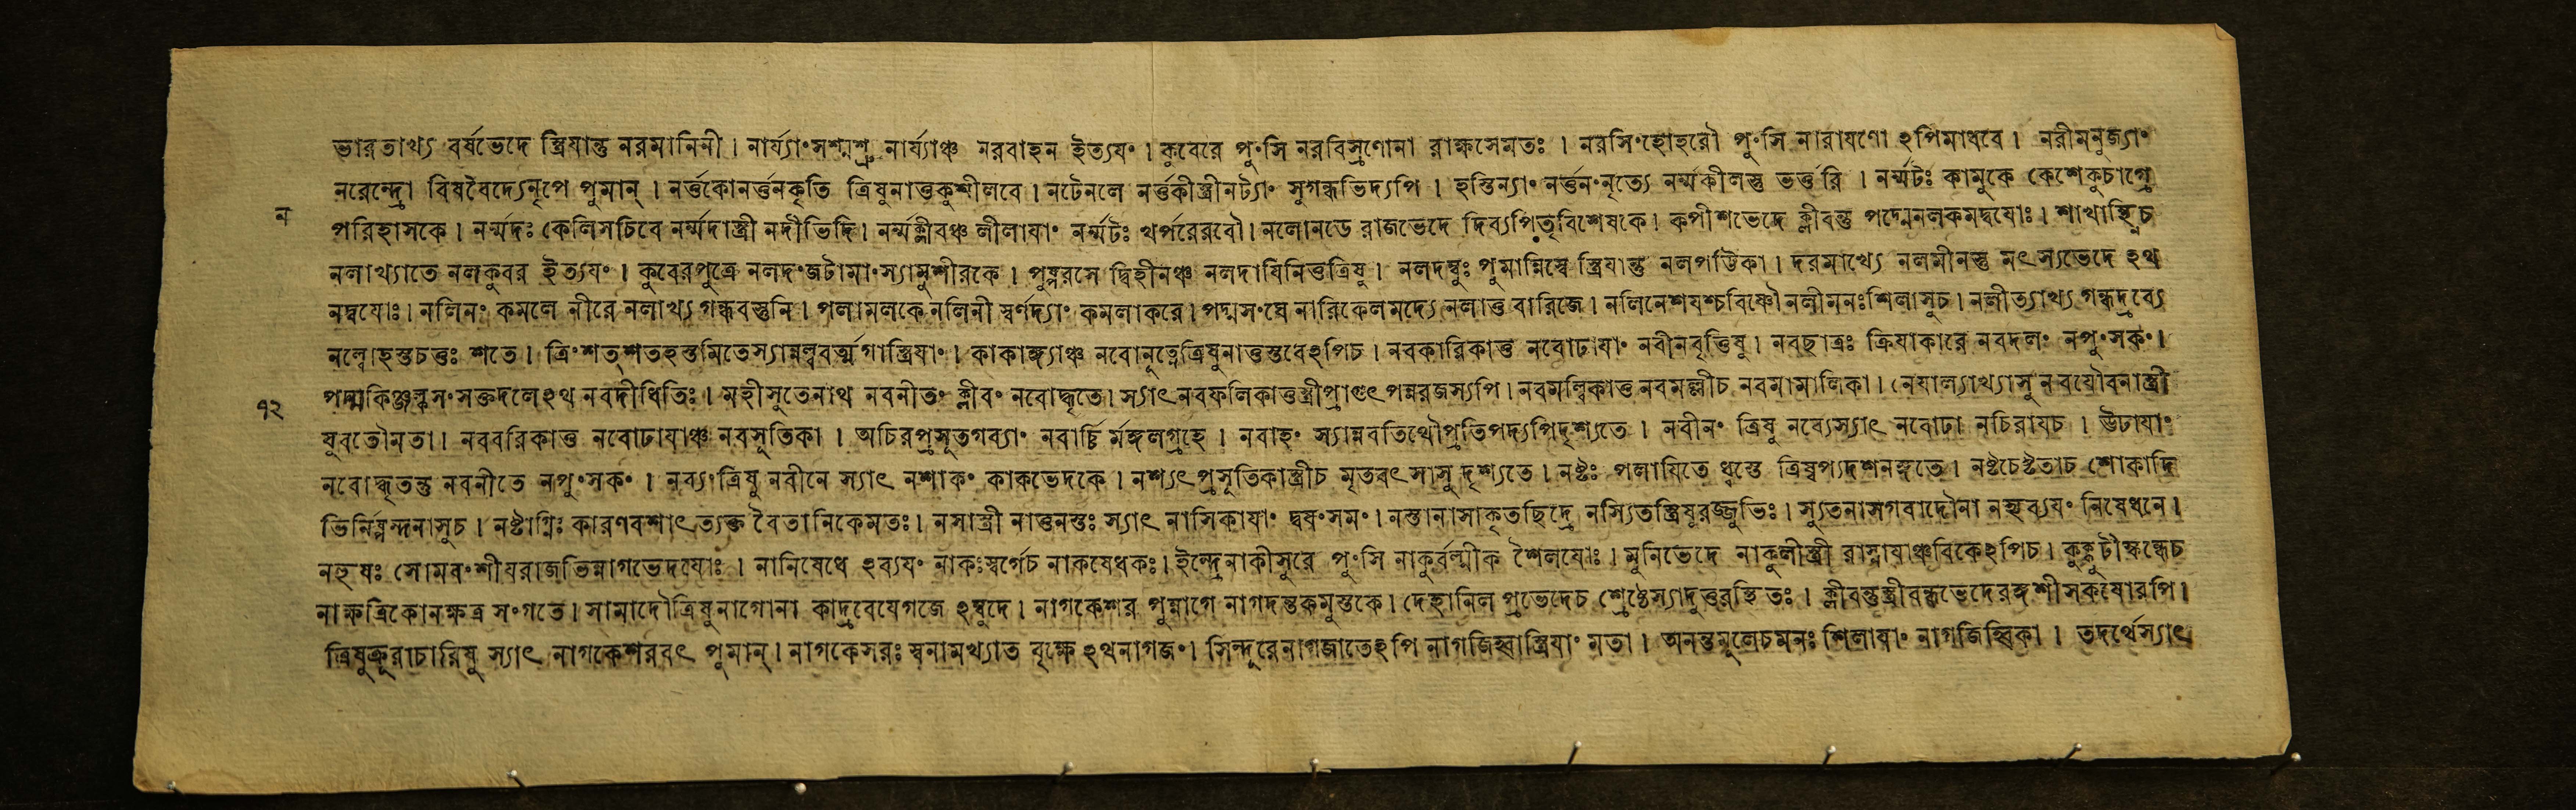 ভারতাখ্য বর্ষভেদে স্ত্রিযান্তু নরমানিনী । নার্য্যাং সশ্মশ্রু নার্য্যাঞ্চ নরবাহন ইত্যযং । কুবেরে পুংসি নরবিস্রণোনা রাক্ষসেমতঃ । নরসিংহোহরৌ পুংসি নারাযণো ঽপিমাধবে । নরীমনুজ্যাং
নরেন্দ্রো বিষবৈদ্যেনৃপে পুমান্ । নর্ত্তকোনর্ত্তনকৃতি ত্রিষুনাত্তকুশীলবে । নটেনলে নর্ত্তকীস্ত্রীনট্যাং সুগন্ধভিদ্যপি । হস্তিন্যাং নর্ত্তনংনৃত্যে নর্ম্মকীলস্তু ভর্ত্তরি । নর্ম্মটঃ কামুকে কেশেকুচাগ্রে
ন
পরিহাসকে । নর্ম্মদঃ কেলিসচিবে নর্ম্মদাস্ত্রী নদীভিদি । নর্ম্মক্লীবঞ্চ লীলাযাং নর্ম্মটঃ খর্পরেরবৌ । নলোনডে রাজভেদে দিব্যপিতৃবিশেষকে । কপীশভেদে ক্লীবন্তু পদ্মেনলকমদ্বযোঃ । শাখাস্থ্নিচ
নলাখ্যাতে নলকুবর ইত্যযং । কুবেরপুত্রে নলদং জটামাংস্যামুশীরকে । পুষ্পরসে দ্বিহীনঞ্চ নলদাযিনিত্তত্রিষু । নলদম্বুঃ পুমান্নিম্বে স্ত্রিযান্তু নলপট্টিকা । দরমাখ্যে নলমীনস্তু মৎস্যভেদে ঽথ
নদ্বযোঃ । নলিনং কমলে নীরে নলাখ্য গন্ধবস্তুনি । পলামলকে নলিনী স্বর্ণদ্যাং কমলাকরে । পদ্মসংঘে নারিকেলমদ্যে নলাত্ত বারিজে । নলিনেশযশ্চবিষ্ণৌ নলীমনঃশিলাসুচ । নলীত্যাখ্য গন্ধদ্রব্যে
নল্বোহস্তচত্তঃ শতে । ত্রিংশত্শতহস্তমিতেস্যান্নল্ববর্ত্মগাস্ত্রিযাং । কাকাঙ্গ্যাঞ্চ নবোনূত্নেত্রিষুনাত্তস্তবেঽপিচ । নবকারিকাত্ত নবোঢাযাং নবীনবৃত্তিষু । নবছাত্রঃ ক্রিযাকারে নবদলং নপুংসকং ।
৭২
পদ্মকিঞ্জল্কসংসক্তদলেঽথ নবদীধিতিঃ । মহীসুতেনাথ নবনীতং ক্লীবং নবোদ্ধৃতে । স্যাৎ নবফলিকাত্তস্ত্রীপ্রাগুৎপন্নরজস্যপি । নবমল্লিকাত্ত নবমল্লীচ নবমামালিকা । নেযাল্যাখ্যাসু নবযৌবনাস্ত্রী
যুবতৌমতা । নববরিকাত্ত নবোঢাযাঞ্চ নবসূতিকা । অচিরপ্রসূতগব্যাং নবার্চ্চি র্মঙ্গলগ্রহে । নবাহং স্যান্নবতিথৌপ্রতিপদ্যপিদৃশ্যতে । নবীনং ত্রিষু নব্যেস্যাৎ নবোঢা নচিরাযচ । ঊঢাযাং
নবোদ্ধৃতন্তু নবনীতে নপুংসকং । নব্যংত্রিষু নবীনে স্যাৎ নশাকং কাকভেদকে । নশ্যৎপ্রসূতিকাস্ত্রীচ মৃতবৎসাসু দৃশ্যতে । নষ্টঃ পলাযিতে ধ্বস্তে ত্রিষ্বপ্যদশনঙ্গতে । নষ্টচেষ্টতাচ শোকাদি
ভির্নিস্পন্দনাসুচ । নষ্টাগ্নিঃ কারণবশাৎত্যক্ত বৈতানিকেমতঃ । নসাস্ত্রী নাত্তনস্তঃ স্যাৎ নাসিকাযাং দ্বযংসমং । নস্তানাসাকৃতছিদ্রে নস্যিতস্ত্রিষুরজ্জুভিঃ । স্যুতনাসগবাদৌনা নহ্যব্যযং নিষেধনে ।
নহুষঃ সোমবংশীযরাজভিন্নাগভেদযোঃ । নানিষেধে ঽব্যযং নাকঃস্বর্গেচ নাকষেধকঃ । ইন্দ্রেনাকীসুরে পুংসি নাকুর্বল্মীক শৈলযোঃ । মুনিভেদে নাকুলীস্ত্রী রাস্নাযাঞ্চবিকেঽপিচ । কুক্কুটীকন্দেচ
নাক্ষত্রিকোনক্ষত্র সংগতে । সামাদৌত্রিষুনাগোনা কাদ্রবেযেগজে ঽম্বুদে । নাগকেশর পুন্নাগে নাগদন্তকমুস্তকে । দেহানিল প্রভেদেচ শ্রেষ্ঠেস্যাদুত্তরস্থিতঃ । ক্লীবন্তুস্ত্রীবন্ধভেদেরঙ্গশীসকযোরপি ।
ত্রিষুক্রূরাচারিষু স্যাৎ নাগকেশরবৎ পুমান্ । নাগকেসরঃ স্বনামখ্যাত বৃক্ষে ঽথনাগজং । সিন্দুরেনাগজাতেঽপি নাগজিহ্বাস্ত্রিযাং মতা । অনন্তমূলেচমনঃ শিলাযাং নাগজিহ্বিকা । তদর্থেস্যাৎ